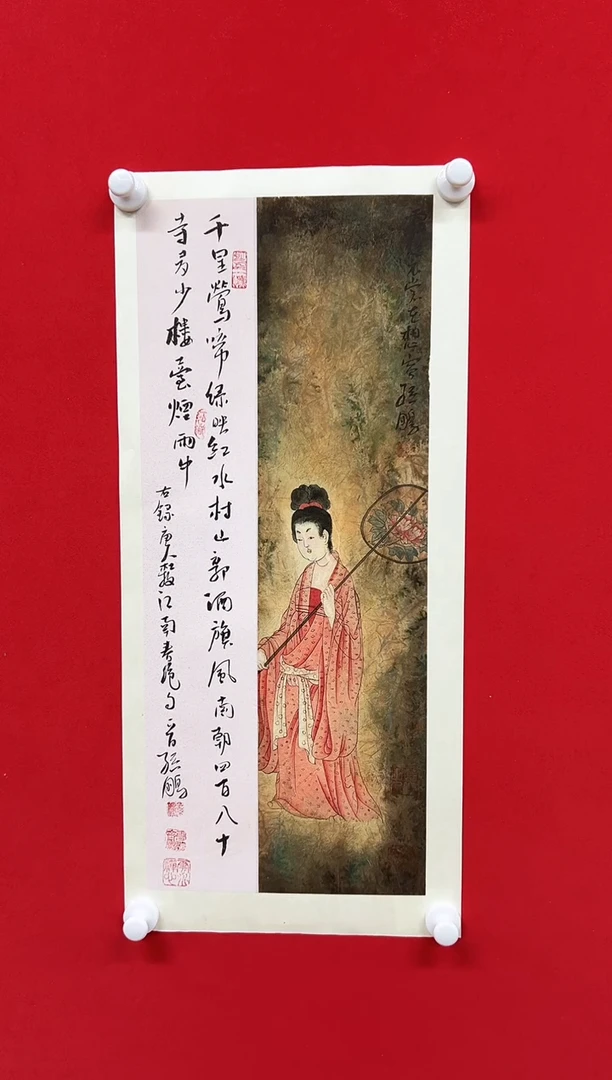 千里鶯啼緑映紅水村山郭酒旗風南朝四百八十
寺多少樓臺煙雨中
右録唐人杜牧江南春絶句晋孫鵬
孫鵬